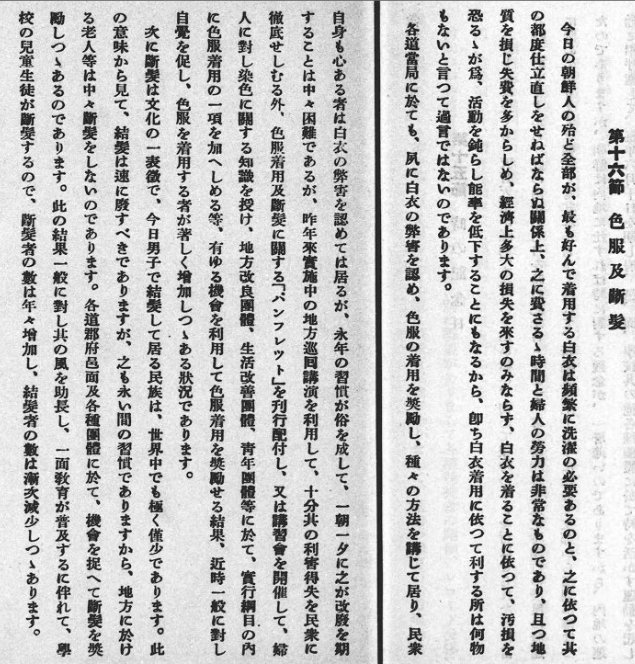 第十六節　色服及斷髮
今日の朝鮮人の殆ど全部が、最も好んで着用する白衣は頻繁に洗濯の必要あるのと、之に依つて其
の都度仕立直しをせねばならぬ關係上、之に費さるゝ時間と婦人の勞力は非常なものであり、且つ地
質を損じ失費を多からしめ、經濟上多大の損失を來すのみならず、白衣を着ることに依つて、汚損を
恐るゝが爲、活動を鈍らし能率を低下することにもなるから、卽ち白衣着用に依つて利する所は何物
もないと言つて過言ではないのであります。
各道當局に於ても、夙に白衣の弊害を認め、色服の着用を奬勵し、種々の方法を講じて居り、民衆
自身も心ある者は白衣の弊害を認めては居るが、永年の習慣が俗を成して、一朝一夕に之が改廢を期
することは中々困難であるが、昨年來實施中の地方巡回講演を利用して、十分其の利害得失を民衆に
徹底せしむる外、色服着用及斷髮に關する「パンフレツト」を刊行配付し、又は講習會を開催して、婦
人に對し染色に關する知識を授け、地方改良團體、生活改善團體、靑年團體等に於て、實行綱目の內
に色服着用の一項を加へしめる等、有ゆる機會を利用して色服着用を奬勵せる結果、近時一般に對し
自覺を促し、色服を着用する者が著しく增加しつゝある狀況であります。
次に斷髮は文化の一表徵で、今日男子で結髮して居る民族は、世界中でも極く僅少であります。此
の意味から見て、結髮は速に廢すべきでありますが、之も永い間の習慣でありますから、地方に於け
る老人等は中々斷髮をしないのであります。各道郡府邑面及各種團體に於て、機會を捉へて斷髮を奬
勵しつゝあるのであります。此の結果一般に對し其の風を助長し、一面敎育が普及するに伴れて、學
校の兒童生徒が斷髮するので、斷髮者の數は年々增加し、結髮者の數は漸次減少しつゝあります。